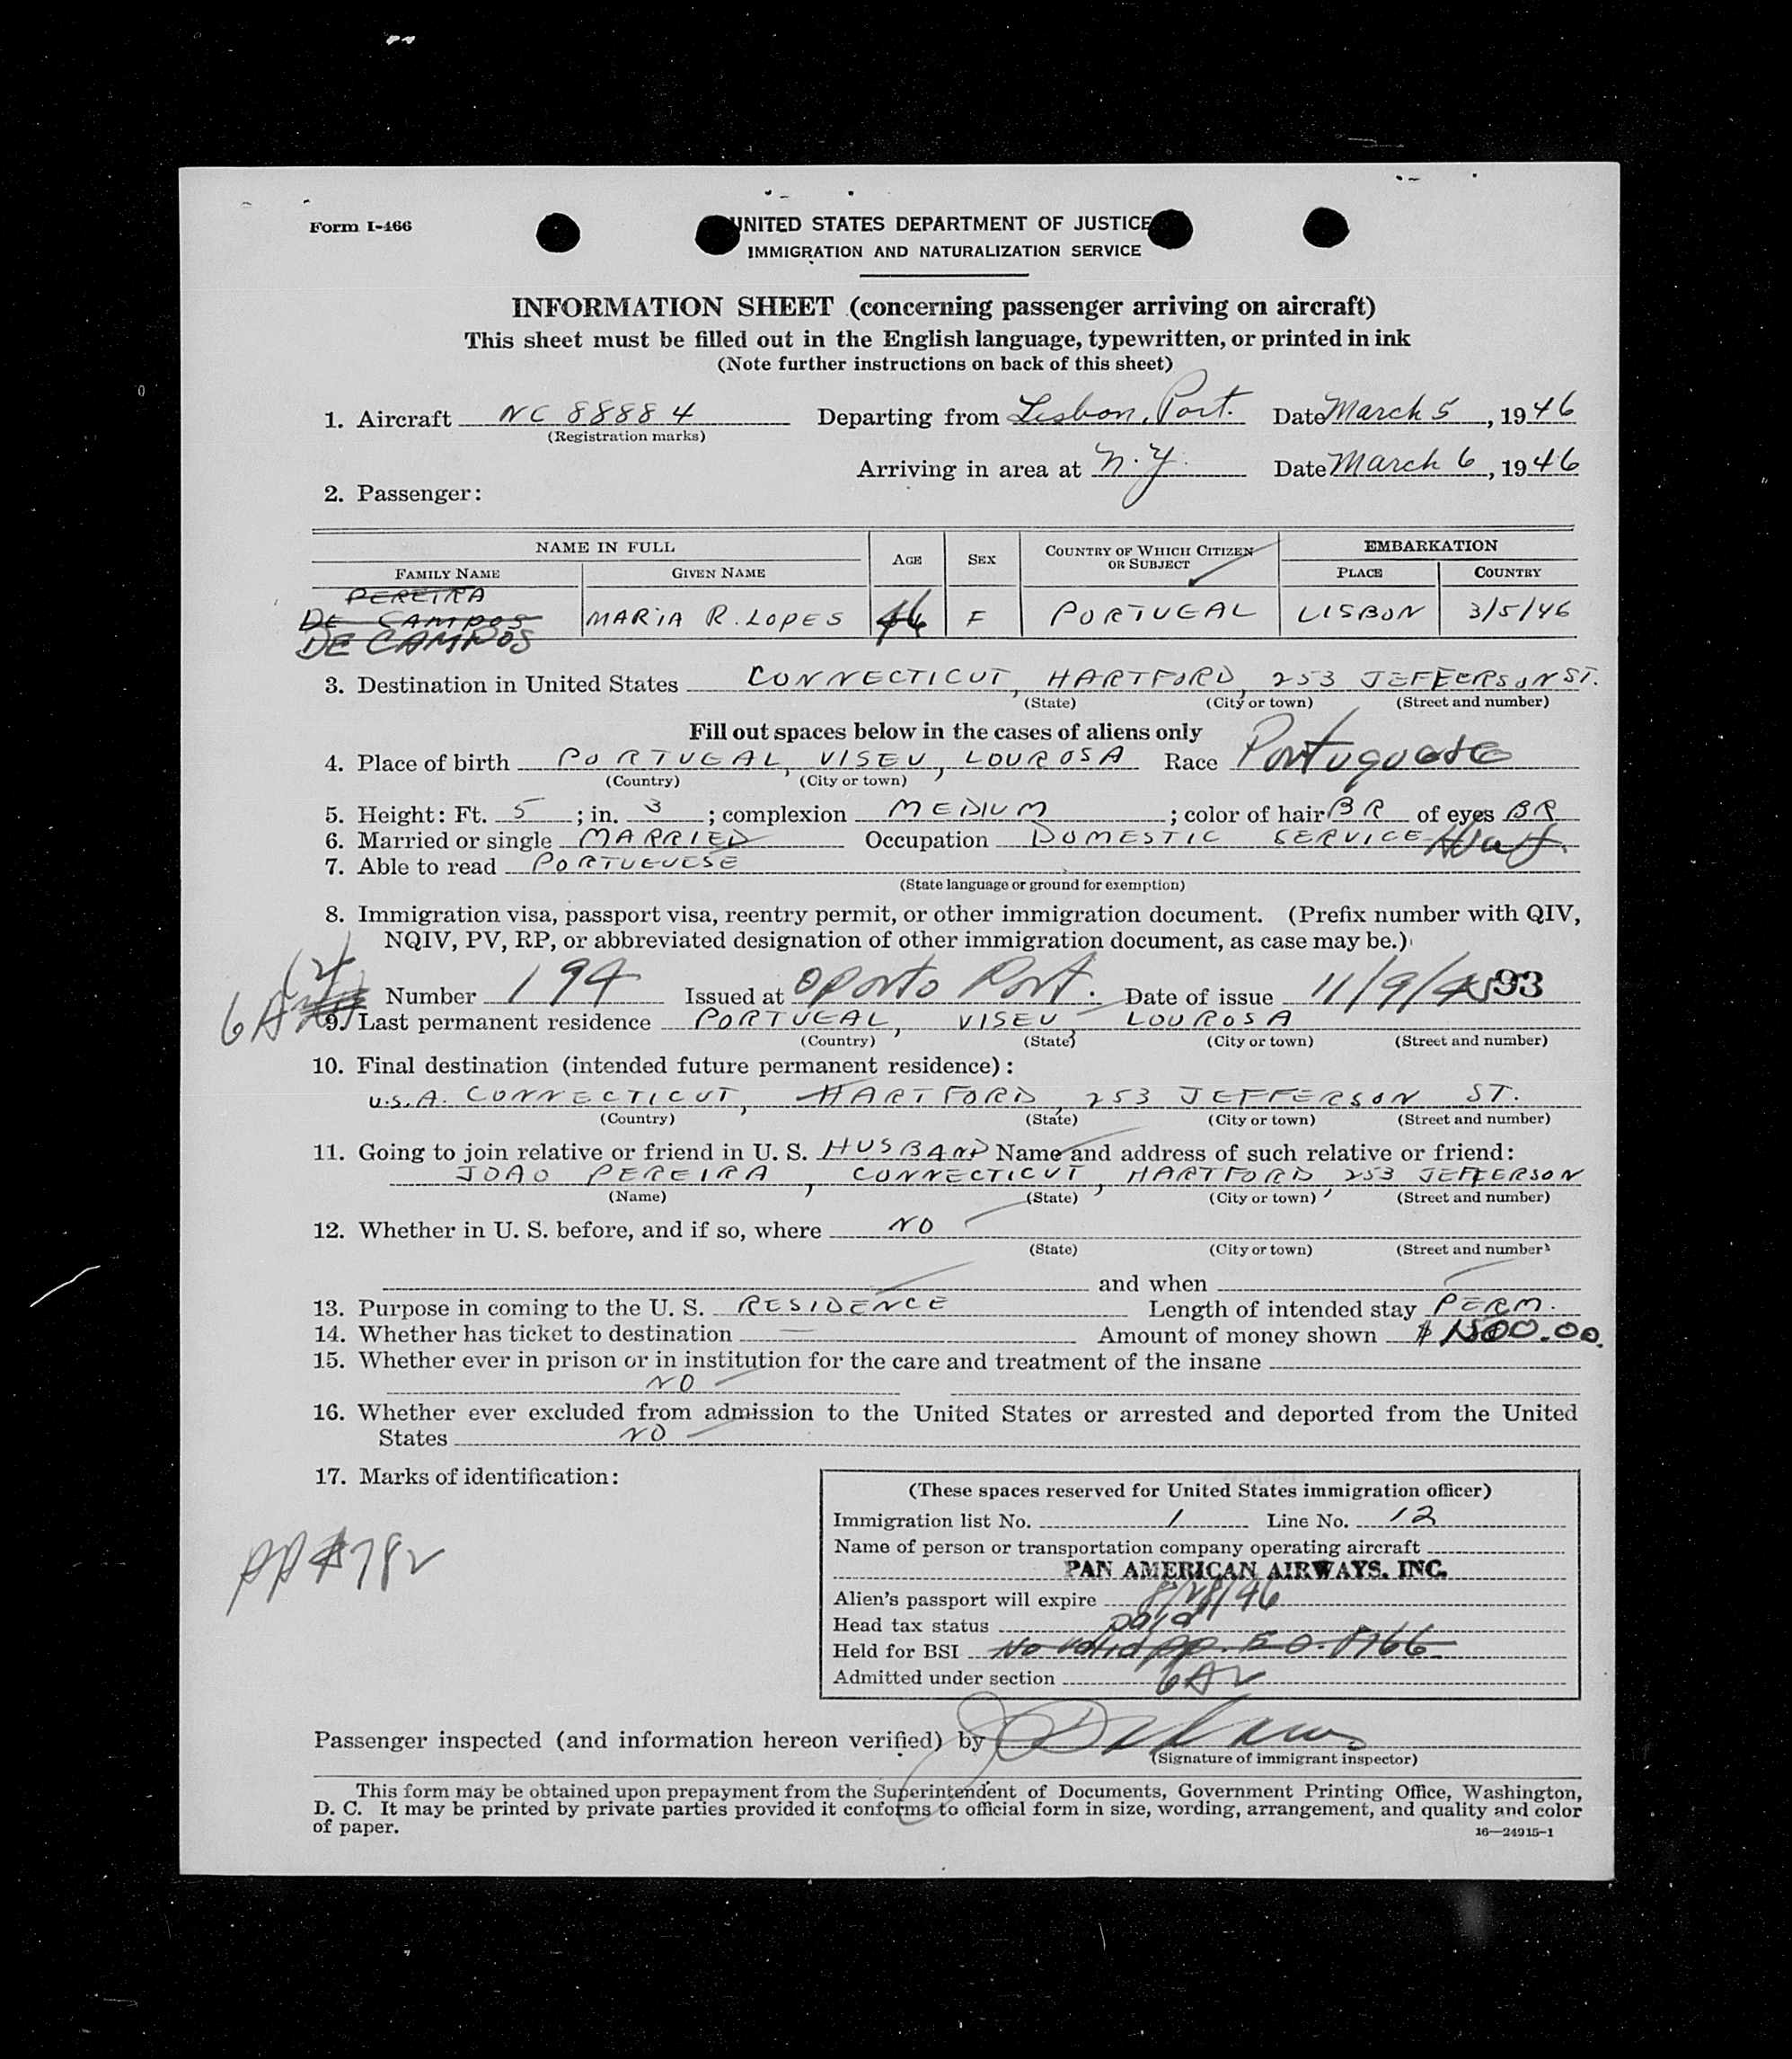 Form I-466
UNITED STATES DEPARTMENT OF JUSTICE
IMMIGRATION AND NATURALIZATION SERVICE
INFORMATION SHEET (concerning passenger arriving on aircraft)
This sheet must be filled out in the English language, typewritten, or printed in ink
(Note further instructions on back of this sheet)
1. Aircraft NC 88884 Departing from Lisbon, Port. Date March 5, 1946
(Registration marks)
Arriving in area at N.Y. Date March 6, 1946
2. Passenger:
NAME IN FULL AGE SEX COUNTRY OF WHICH CITIZEN OR SUBJECT EMBARKATION
FAMILY NAME GIVEN NAME PLACE COUNTRY
PEREIRA
DE CAMPOS MARIA R. LOPES 46 F PORTUGAL LISBON 3/5/46
DE CAMPOS
3. Destination in United States CONNECTICUT, HARTFORD, 253 JEFFERSON ST.
(State) (City or town) (Street and number)
Fill out spaces below in the cases of aliens only
4. Place of birth PORTUGAL, VISEU, LOUROSA Race Portuguese
(Country) (City or town)
5. Height: Ft. 5; in. 3; complexion MEDIUM; color of hair BR of eyes BR
6. Married or single MARRIED Occupation DOMESTIC SERVICE
7. Able to read PORTUGUESE
(State language or ground for exemption)
8. Immigration visa, passport visa, reentry permit, or other immigration document. (Prefix number with QIV,
NQIV, PV, RP, or abbreviated designation of other immigration document, as case may be.)
Number 194 Issued at Oporto Port. Date of issue 11/9/45 93
9. Last permanent residence PORTUGAL, VISEU, LOUROSA
(Country) (State) (City or town) (Street and number)
10. Final destination (intended future permanent residence):
U.S.A. CONNECTICUT, HARTFORD, 253 JEFFERSON ST.
(Country) (State) (City or town) (Street and number)
11. Going to join relative or friend in U. S. HUSBAND Name and address of such relative or friend:
JOAO PEREIRA, CONNECTICUT, HARTFORD, 253 JEFFERSON
(Name) (State) (City or town) (Street and number)
12. Whether in U. S. before, and if so, where NO
(State) (City or town) (Street and number)
and when
13. Purpose in coming to the U. S. RESIDENCE Length of intended stay PERM.
14. Whether has ticket to destination — Amount of money shown
15. Whether ever in prison or in institution for the care and treatment of the insane
NO
16. Whether ever excluded from admission to the United States or arrested and deported from the United
States NO
17. Marks of identification:
(These spaces reserved for United States immigration officer)
Immigration list No. 1 Line No. 12
Name of person or transportation company operating aircraft
PAN AMERICAN AIRWAYS, INC.
Alien's passport will expire 8/28/46
Head tax status paid
Held for BSI No valid pp. E.O. 8766
Admitted under section 6A2
pp # 782
Passenger inspected (and information hereon verified) by
(Signature of immigrant inspector)
This form may be obtained upon prepayment from the Superintendent of Documents, Government Printing Office, Washington,
D. C. It may be printed by private parties provided it conforms to official form in size, wording, arrangement, and quality and color
of paper.
16—24915-1